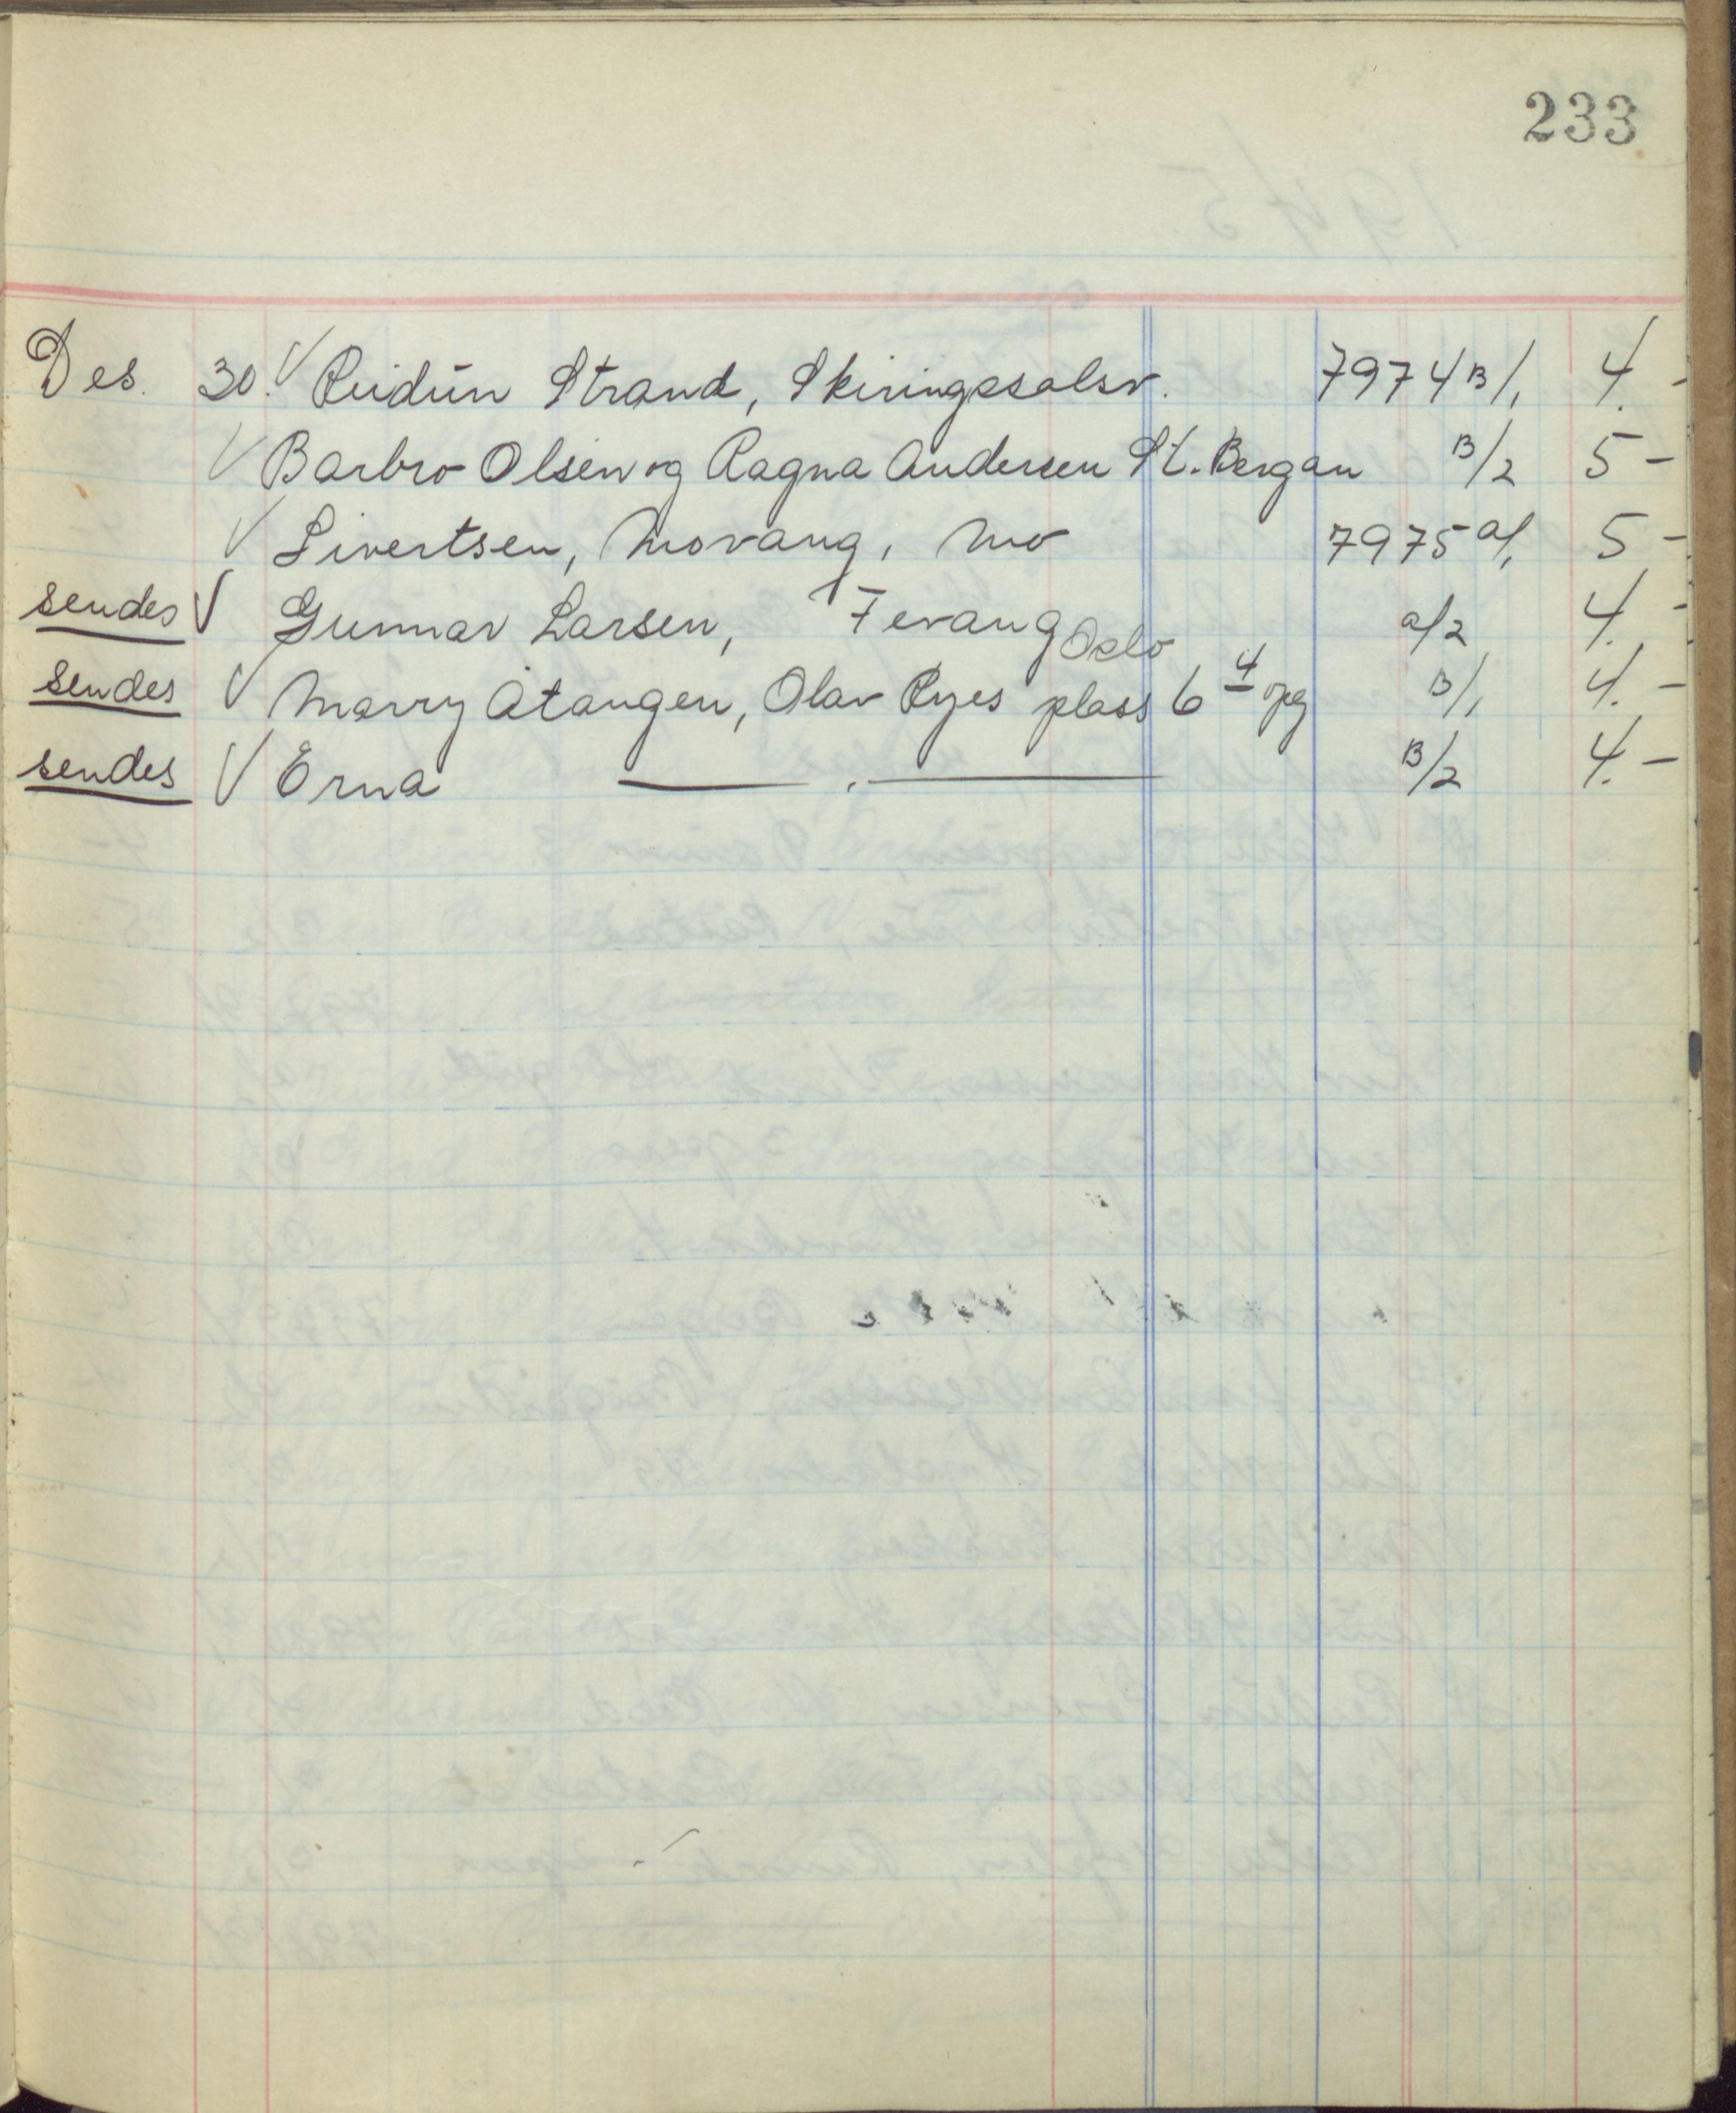 233
Des. 30. √ Reidun Strand, Skiringssalsv. 7974 B/1 4.-
√ Barbro Olsen og Ragna Andersen St. Bergan B/2 5-
√ Sivertsen, Movang, Mo 7975 a/1 5-
sendes √ Gunnar Larsen, Fevang a/2 4.-
Oslo
sendes √ Marry Åtangen, Olav Ryes plass 6 4 opg B/1 4.-
sendes √ Erna —— . —— B/2 4.-